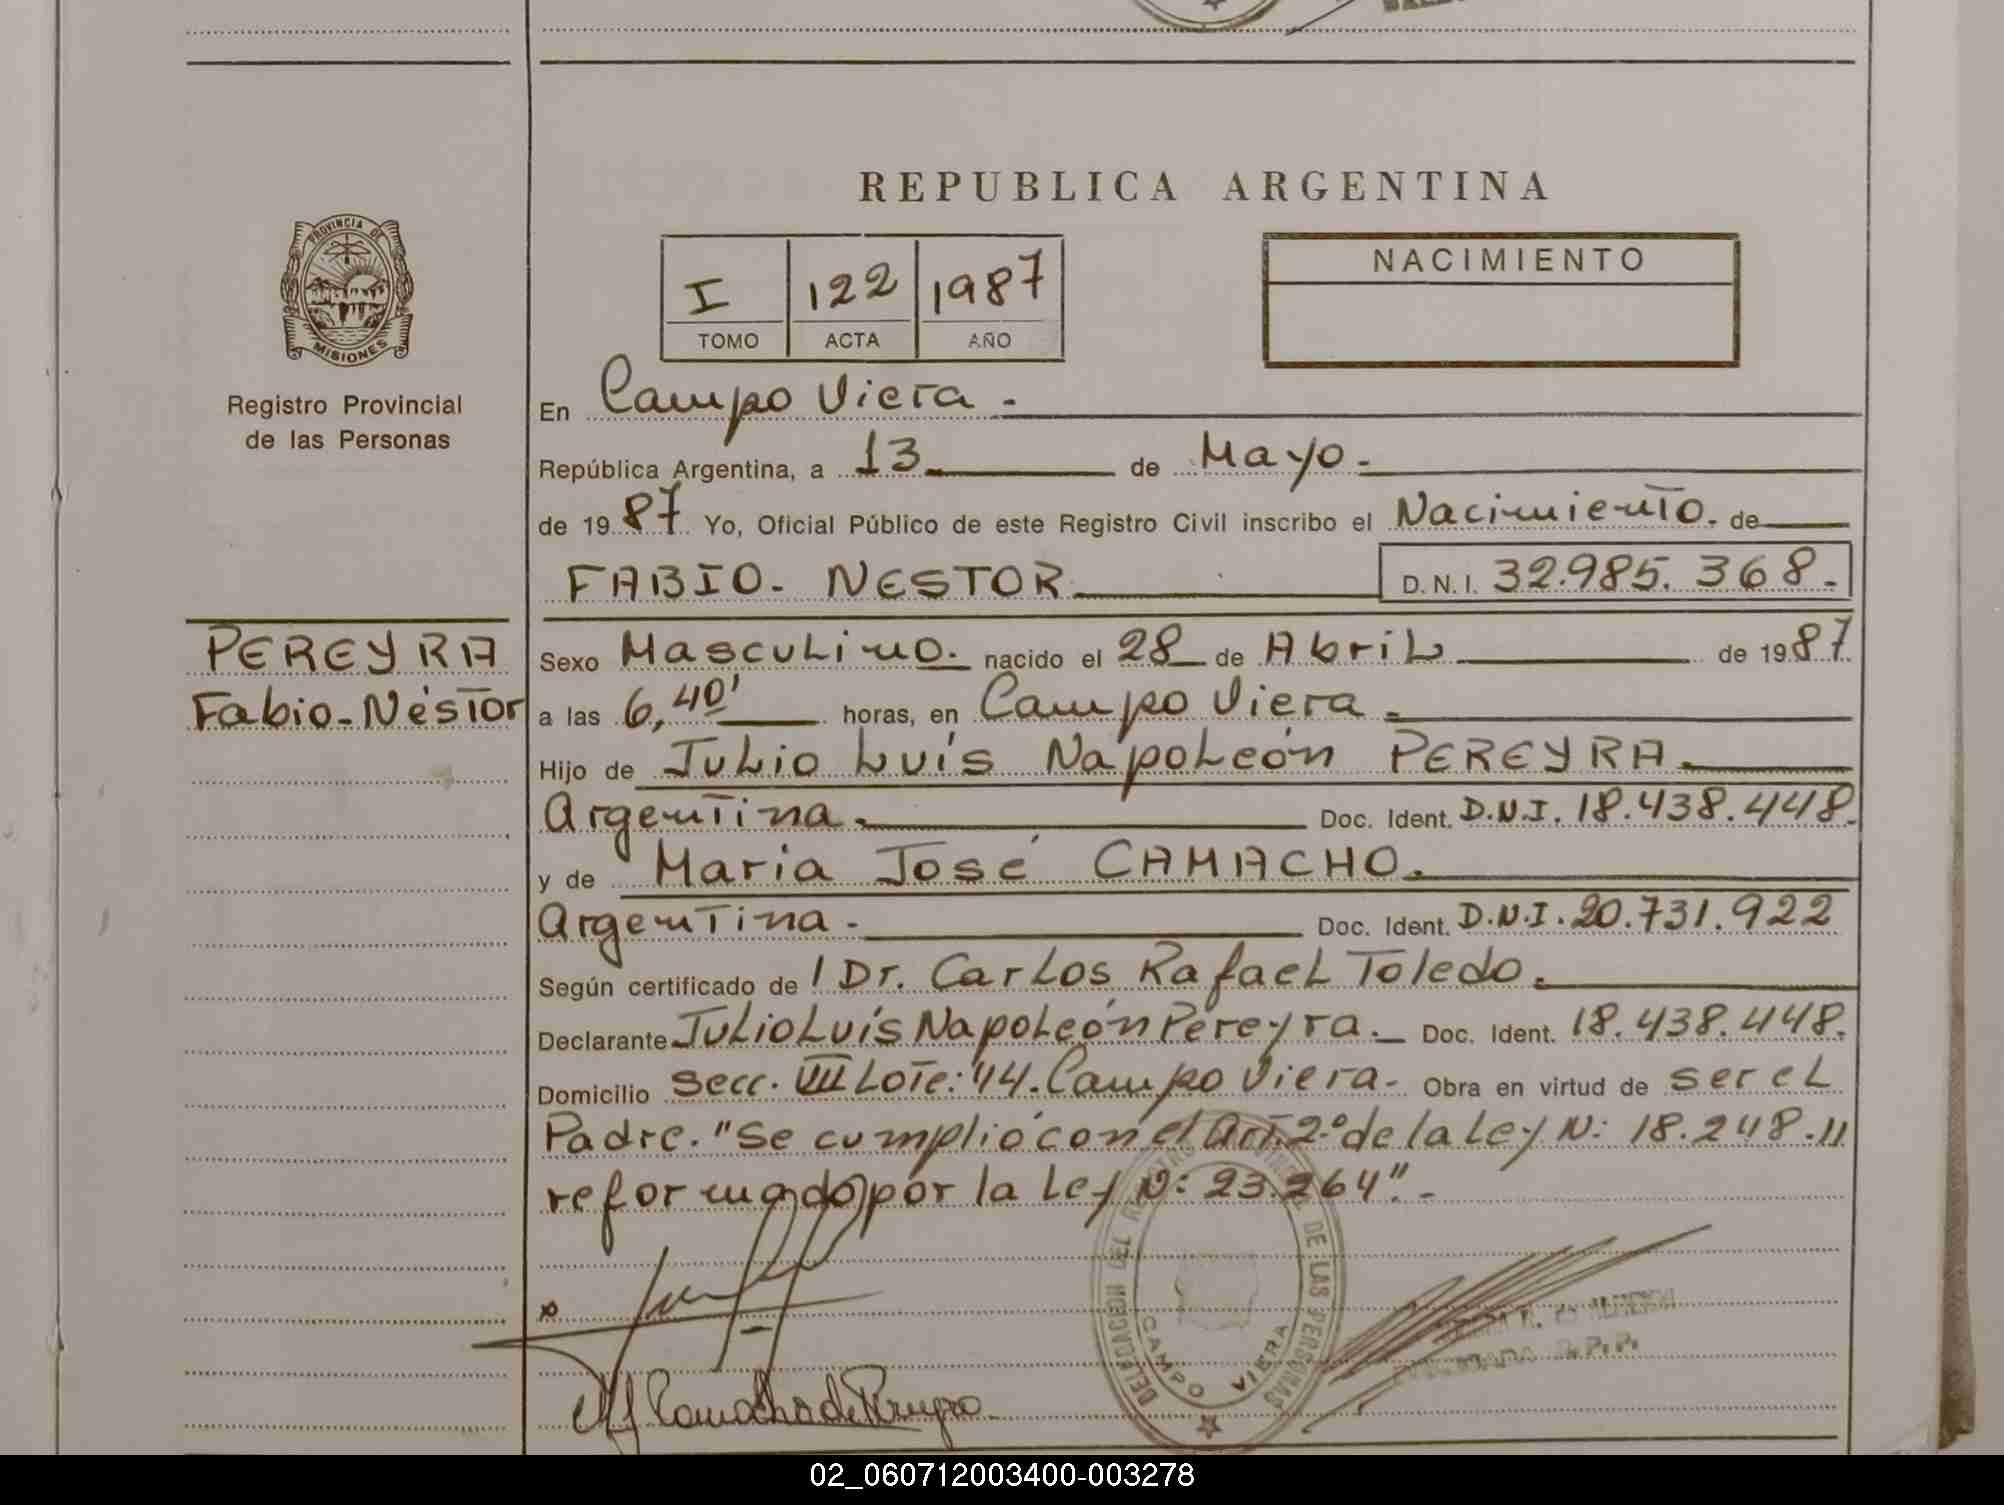 REPUBLICA ARGENTINA
PROVINCIA DE
MISIONES
Registro Provincial
de las Personas
I 122 1987
TOMO ACTA AÑO
NACIMIENTO
En Campo Viera.
República Argentina, a 13 de Mayo.
de 1987 Yo, Oficial Público de este Registro Civil inscribo el Nacimiento. de
FABIO. NESTOR D.N.I. 32.985.368.
PEREYRA
Fabio-Néstor
Sexo Masculino. nacido el 28 de Abril de 1987
a las 6,40' horas, en Campo Viera.
Hijo de Julio Luís Napoleón PEREYRA.
Argentina. Doc. Ident. D.N.I. 18.438.448.
y de Maria José CAMACHO.
Argentina. Doc. Ident. D.N.I. 20.731.922
Según certificado de l Dr. Carlos Rafael Toledo.
Declarante Julio Luís Napoleón Pereyra. Doc. Ident. 18.438.448.
Domicilio Secc. VIII Lote: 14. Campo Viera. Obra en virtud de ser el
Padre. "Se cumplió con el Art. 2º de la Ley N: 18.248.11
reformado por la Ley N: 23.264".
DELEGACION DEL REGISTRO DE LAS PERSONAS
CAMPO VIERA
02_060712003400-003278